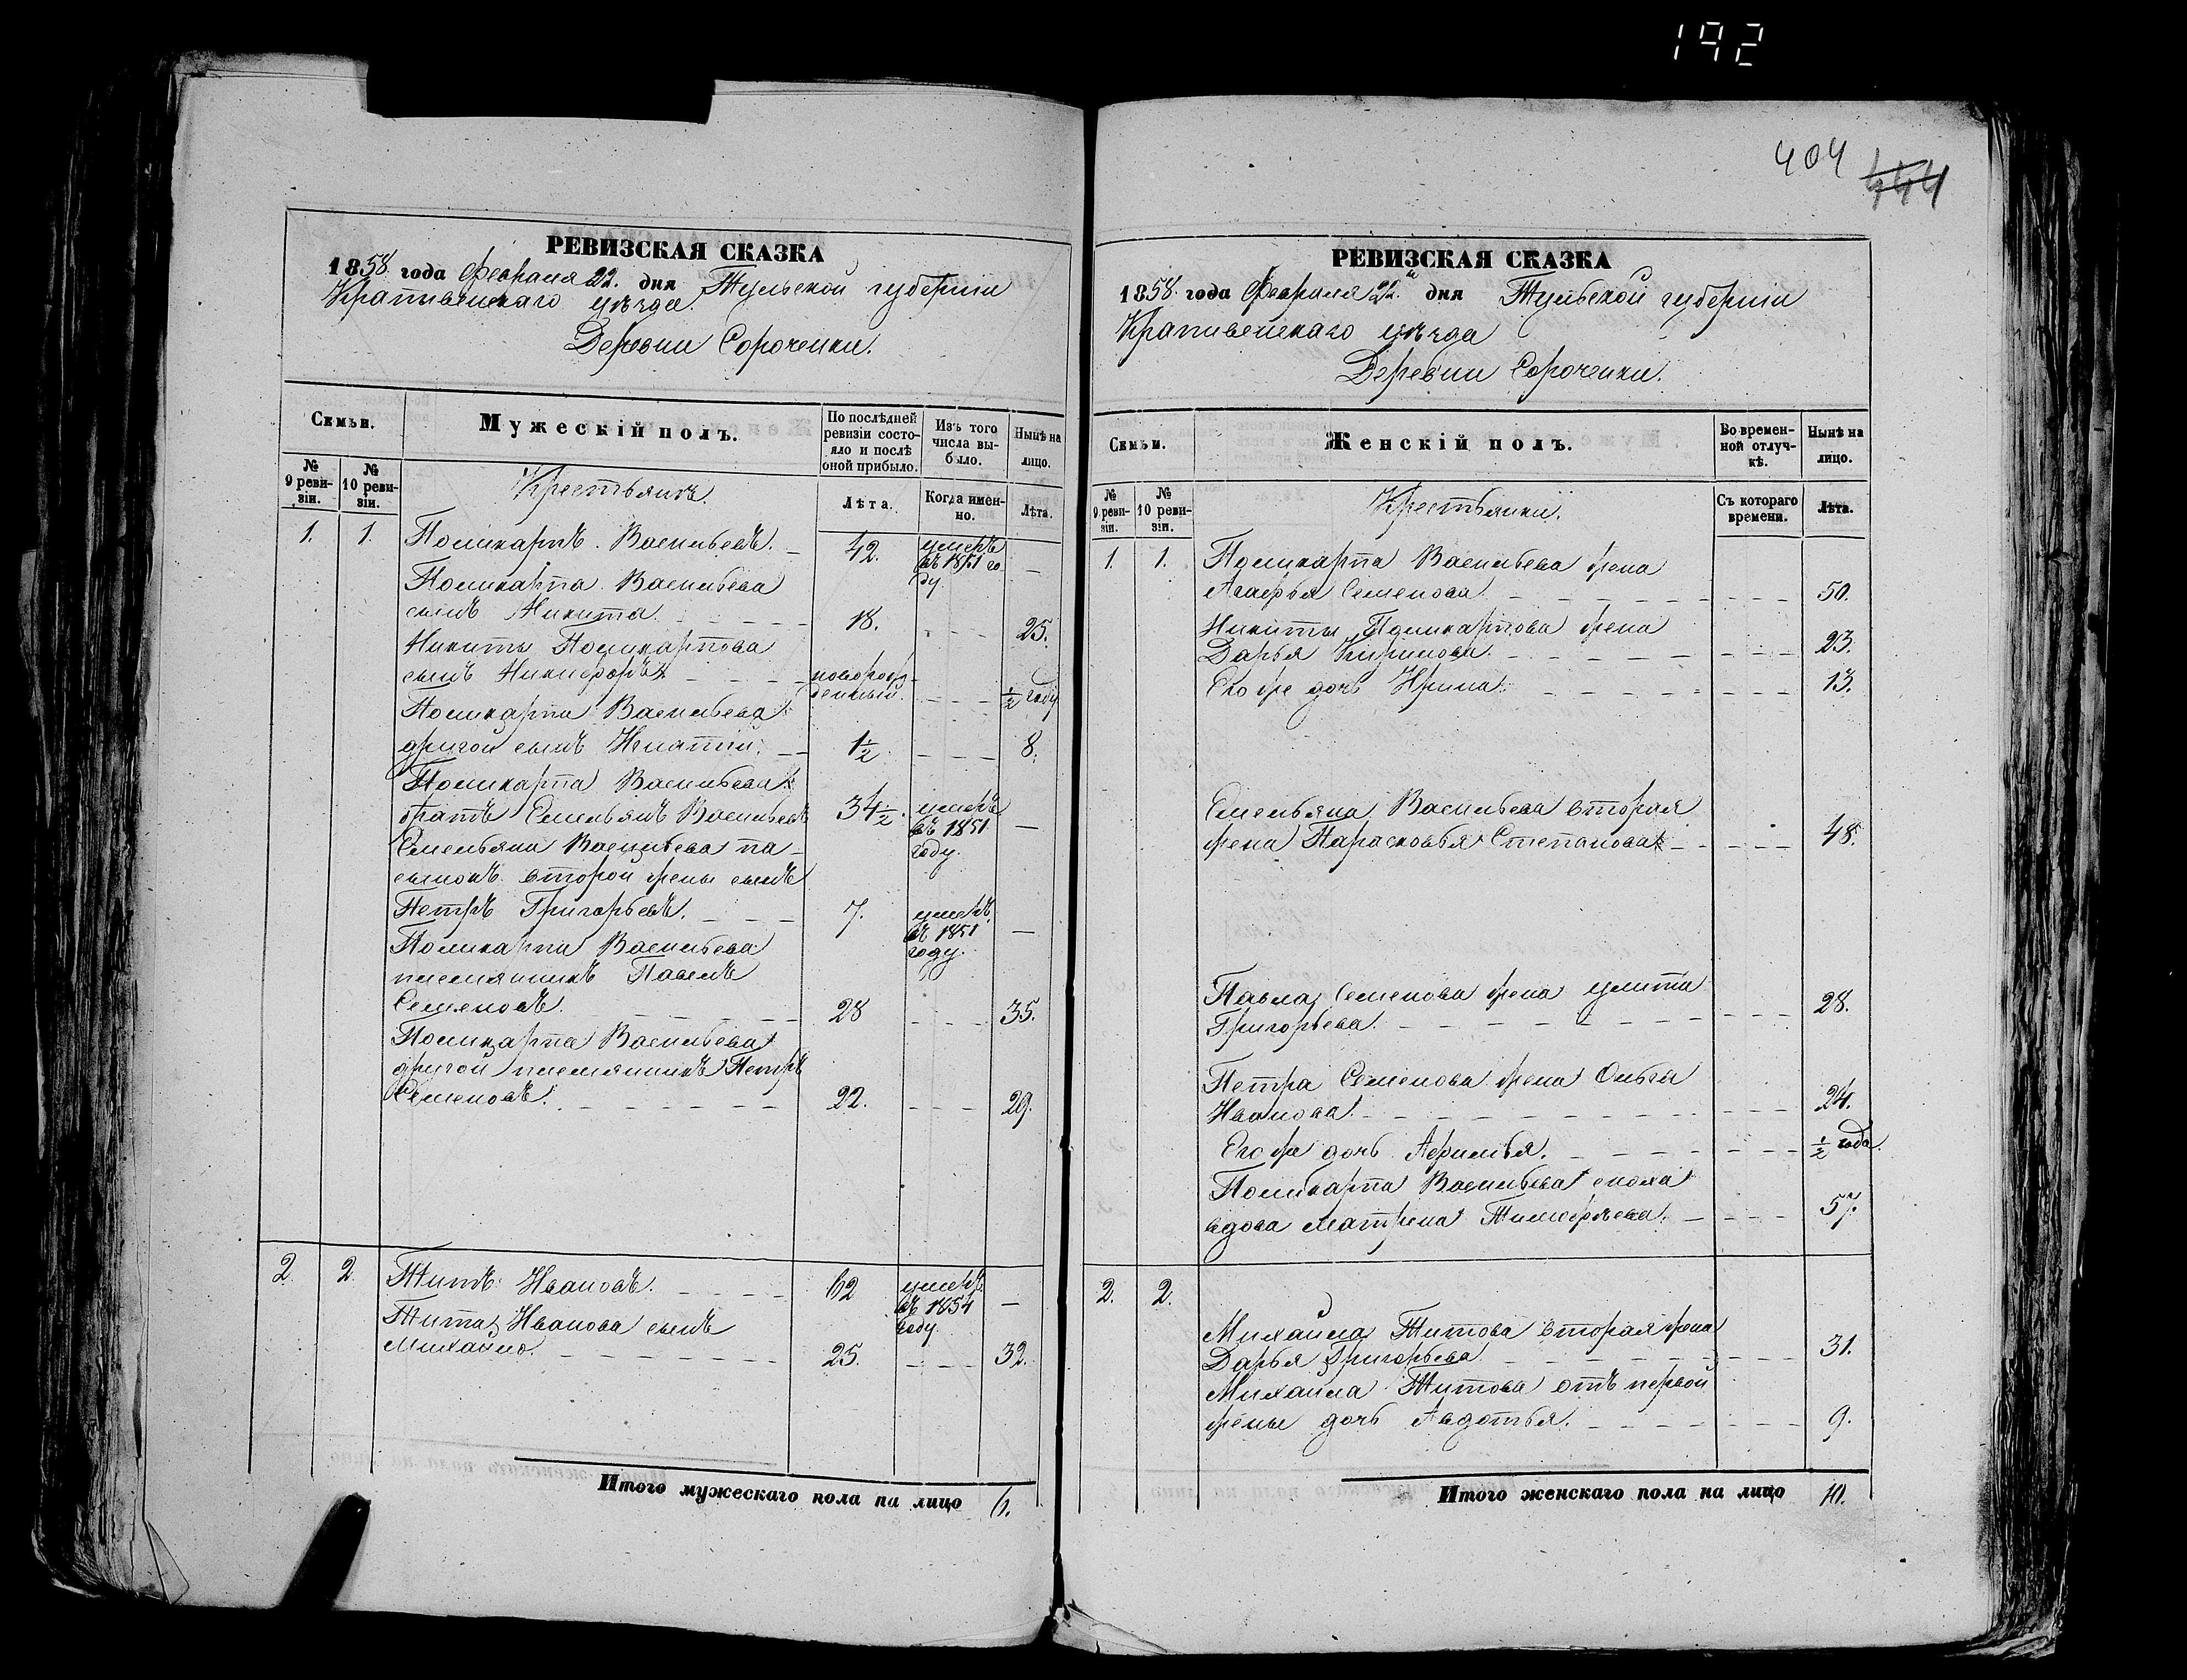 192
404
444
РЕВИЗСКАЯ СКАЗКА
1858 года Февраля 22. дня Тульской губернiи
Крапивенскаго уѣзда
Деревни Сороченки.
Семьи.
Мужескій полъ.
По послѣдней ревизіи состояло и послѣ оной прибыло.
Изъ того числа выбыло.
Нынѣ на лицо.
№ 9 ревизіи.
№ 10 ревизіи.
Крестьянъ
Лѣта.
Когда именно.
Лѣта.
1. 1. Поликарпъ Васильевъ. 42. умеръ въ 1851 году. —
Поликарпа Васильева
сынъ Никита. 18. 25.
Никиты Поликарпова
сынъ Никифоръ новорожденный. ½ году
Поликарпа Васильева
другой сынъ Игнатiй. 1½ 8.
Поликарпа Васильева
братъ Емельянъ Васильевъ 34½. умеръ въ 1851 году. —
Емельяна Васильева па-
сынокъ второй жены сынъ
Петръ Григорьевъ. 7. умеръ въ 1851 году. —
Поликарпа Васильева
племянникъ Павелъ
Семеновъ. 28 35.
Поликарпа Васильева
другой племянникъ Петръ
Семеновъ. 22. 29.
2. 2. Титъ Ивановъ. 62 умеръ въ 1854 году. —
Тита Иванова сынъ
Михайло. 25. 32.
Итого мужескаго пола на лицо 6.
РЕВИЗСКАЯ СКАЗКА
1858 года Февраля 22 дня Тульской губернiи
Крапивенскаго уѣзда
Деревни Сороченки.
Семьи.
Женскій полъ.
Во временной отлучкѣ.
Нынѣ на лицо.
№ 9 ревизіи.
№ 10 ревизіи.
Крестьянки.
Съ котораго времени.
Лѣта.
1. 1. Поликарпа Васильева жена
Агафья Семенова. 50.
Никиты Поликарпова жена
Дарья Кирилова. 23.
Его же дочь Ирина. 13.
Емельяна Васильева вторая
жена Парасковья Степанова 48.
Павла Семенова жена Улита
Григорьева. 28.
Петра Семенова жена Ольга
Иванова. 24.
Его же дочь Афимья. ½ года.
Поликарпа Васильева сноха
вдова Матрена Тимофѣева. 57.
2. 2.
Михаила Титова вторая жена
Дарья Григорьева 31.
Михаила Титова отъ первой
жены дочь Авдотья. 9.
Итого женскаго пола на лицо 10.